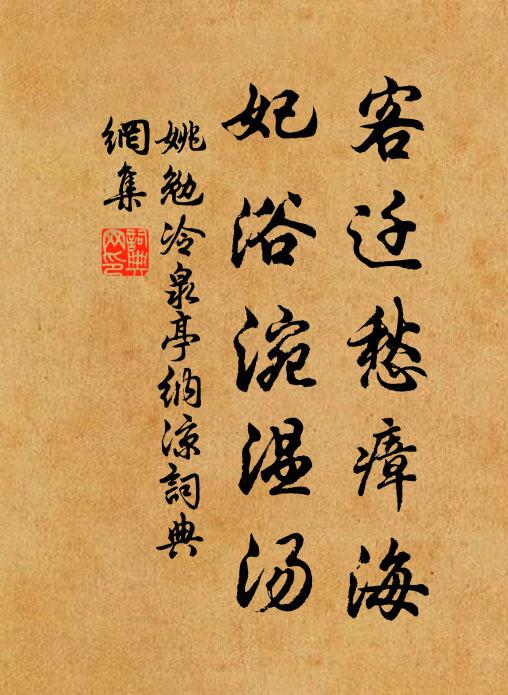 客迁愁瘴海
妃浴涴温汤
姚勉冷泉亭纳凉詞典
網集
詞典
网印